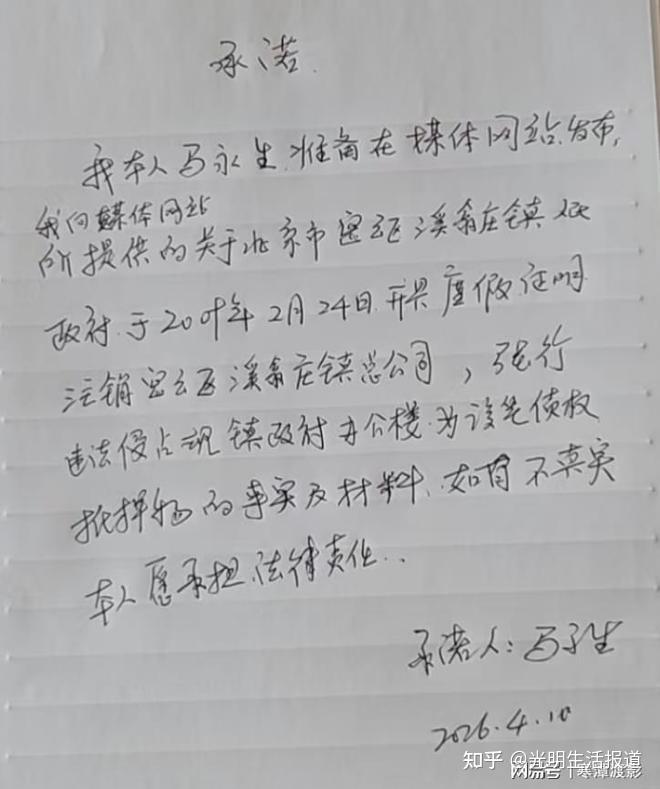 承诺.
我本人马永生,准备在媒体网站发布,
我向媒体网站
所提供的关于北京市密云区溪翁庄镇
政府于2019年2月24日开具虚假证明
注销密云区溪翁庄镇总公司,强行
违法侵占现镇政府办公楼为该笔债权
抵押物的事实及材料、如有不真实
本人愿承担法律责任..
承诺人:马永生
2026.4.10
知乎 @光明生活报道
网易号 | 寒潭渡影